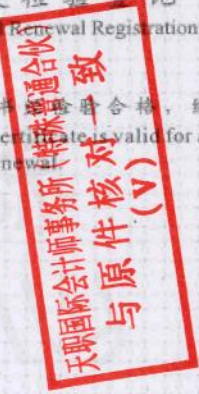 检验登记
Renewal Registration
书经检验合格，继
ertificate is valid for a
newal.
天职国际会计师事务所（特殊普通合伙）
与原件核对一致
（V）